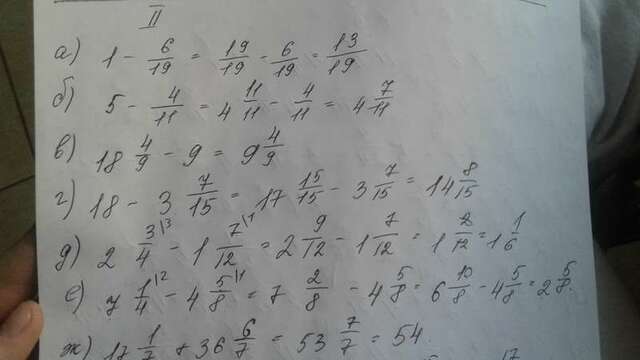 II
а) 1 - 6/19 = 19/19 - 6/19 = 13/19
б) 5 - 4/11 = 4 11/11 - 4/11 = 4 7/11
в) 18 4/9 - 9 = 9 4/9
г) 18 - 3 7/15 = 17 15/15 - 3 7/15 = 14 8/15
д) 2 3/4 \3 - 1 7/12 \1 = 2 9/12 - 1 7/12 = 1 2/12 = 1 1/6
е) 7 1/4 \2 - 4 5/8 \1 = 7 2/8 - 4 5/8 = 6 10/8 - 4 5/8 = 2 5/8.
ж) 17 1/7 + 36 6/7 = 53 7/7 = 54.